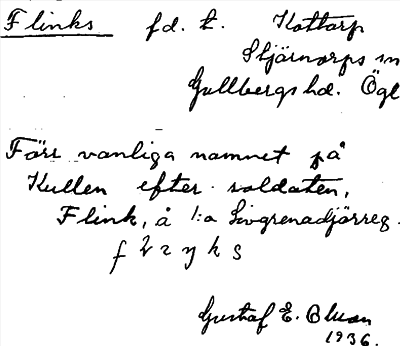 Flinks fd. t. Kottorp
Stjärnorps sn
Gullbergs hd. Ögl
Förr vanliga namnet på
Kullen efter soldaten,
Flink, å 1:a Livgrenadjärreg.
Gustaf E.
1936.